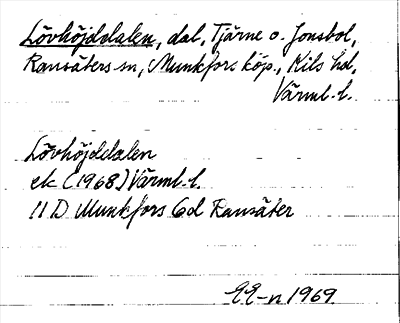 Lövhöjddalen, dal, Tjärne o. Jonsbol,
Ransäters sn, Munkfors köp., Kils hd,
Värml. l.
Lövhöjddalen
ek (1968) Värml. l.
11 D Munkfors 6d Ransäter
1969